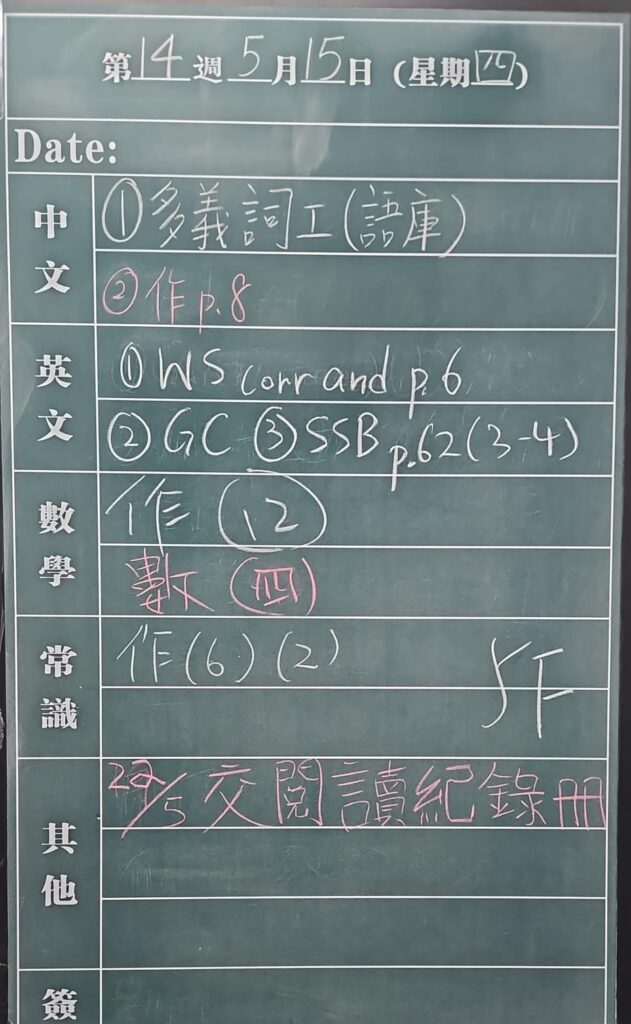 第14週5月15日(星期四)
Date:
中文
①多義詞工(語庫)
②作p.8
英文
①WS corr and p.6
②GC ③SSB p.62(3-4)
數學
作(12)
數(四)
常識
作(6)(2)
5F
其他
/5交閱讀紀錄冊
簽